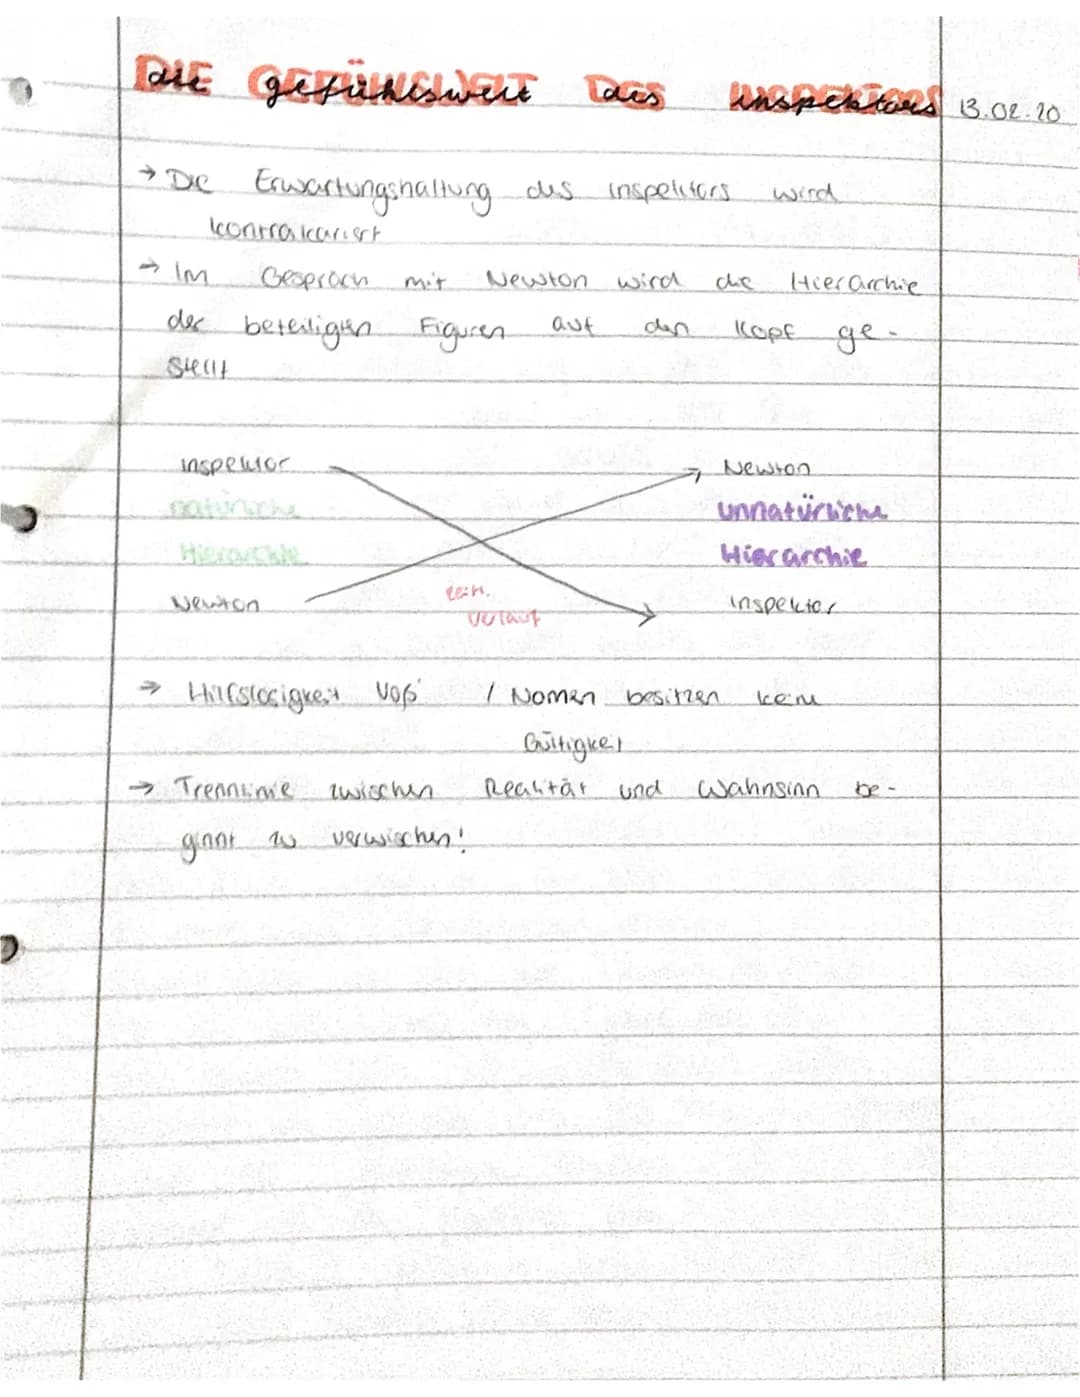 DIE GEFÜHLSWELT DES INSPEKTORS 13.02.20
→ Die Erwartungshaltung des Inspektors wird
kontrakariert
→ Im Gespräch mit Newton wird die Hierarchie
der beteiligten Figuren auf den Kopf ge-
stellt
Inspektor Newton
natürliche unnatürliche
Hierarchie Hierarchie
Newton zeitl. Inspektor
Verlauf
→ Hilfslosigkeit Voß' / Nomen besitzen keine
Gültigkeit
→ Trennlinie zwischen Realität und Wahnsinn be-
ginnt zu verwischen!